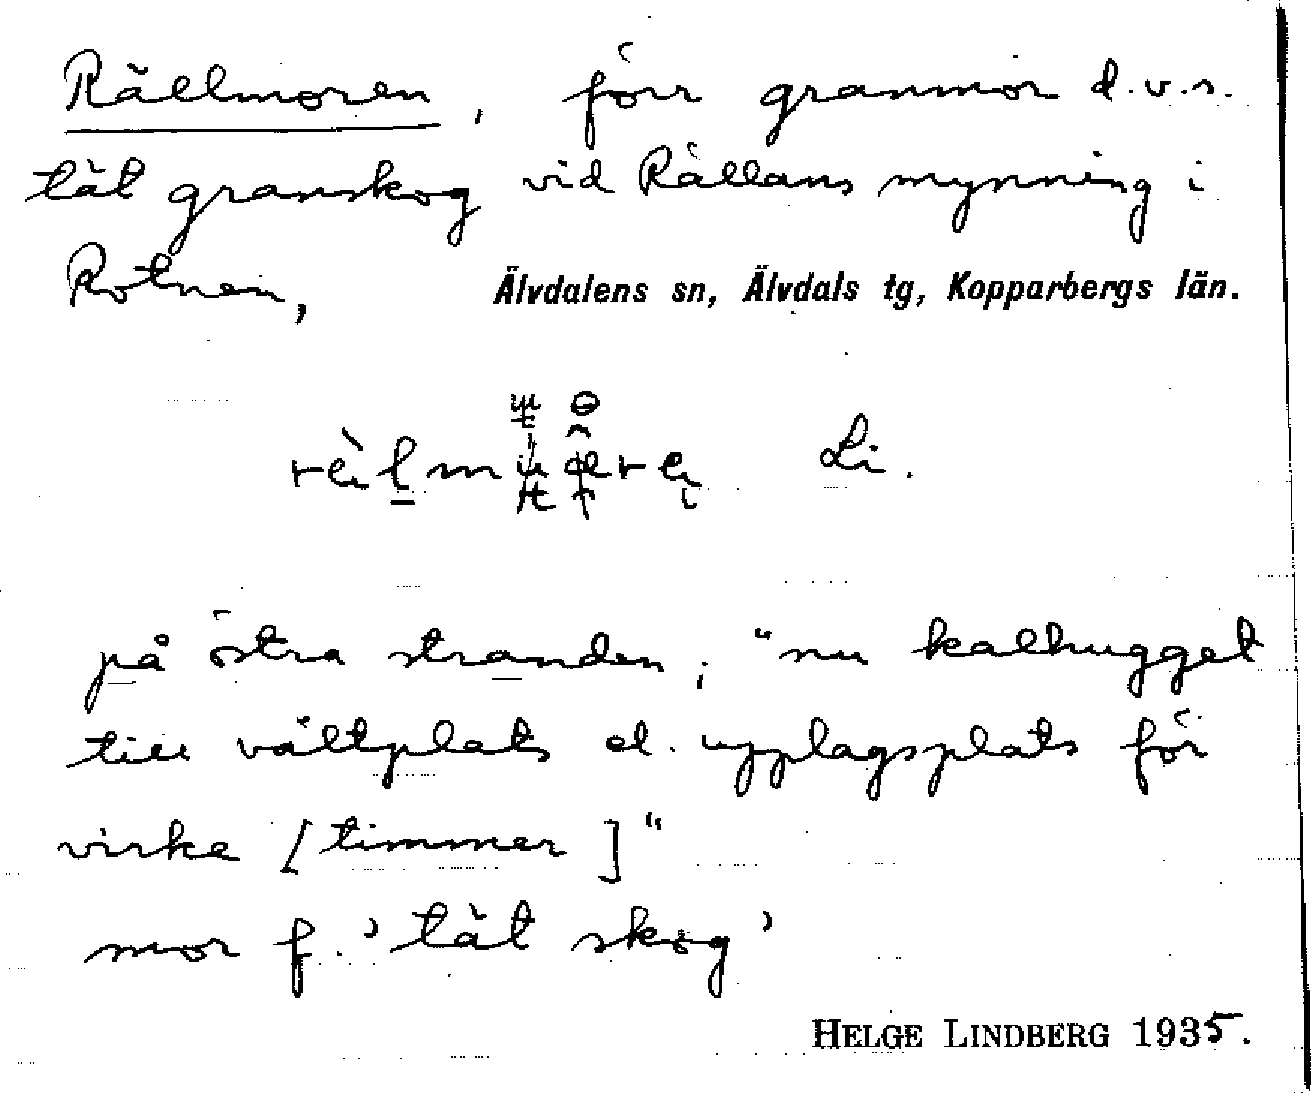 Rällmoren, förr granmor d.v.s.
tät granskog vid Rällans mynning i
Rotnen, Älvdalens sn, Älvdals tg, Kopparbergs län.
Li.
på östra stranden; "nu kalhugget
till vältplats el. upplagsplats för
virke [timmer]"
mor f. 'tät skog'
HELGE LINDBERG 1935.